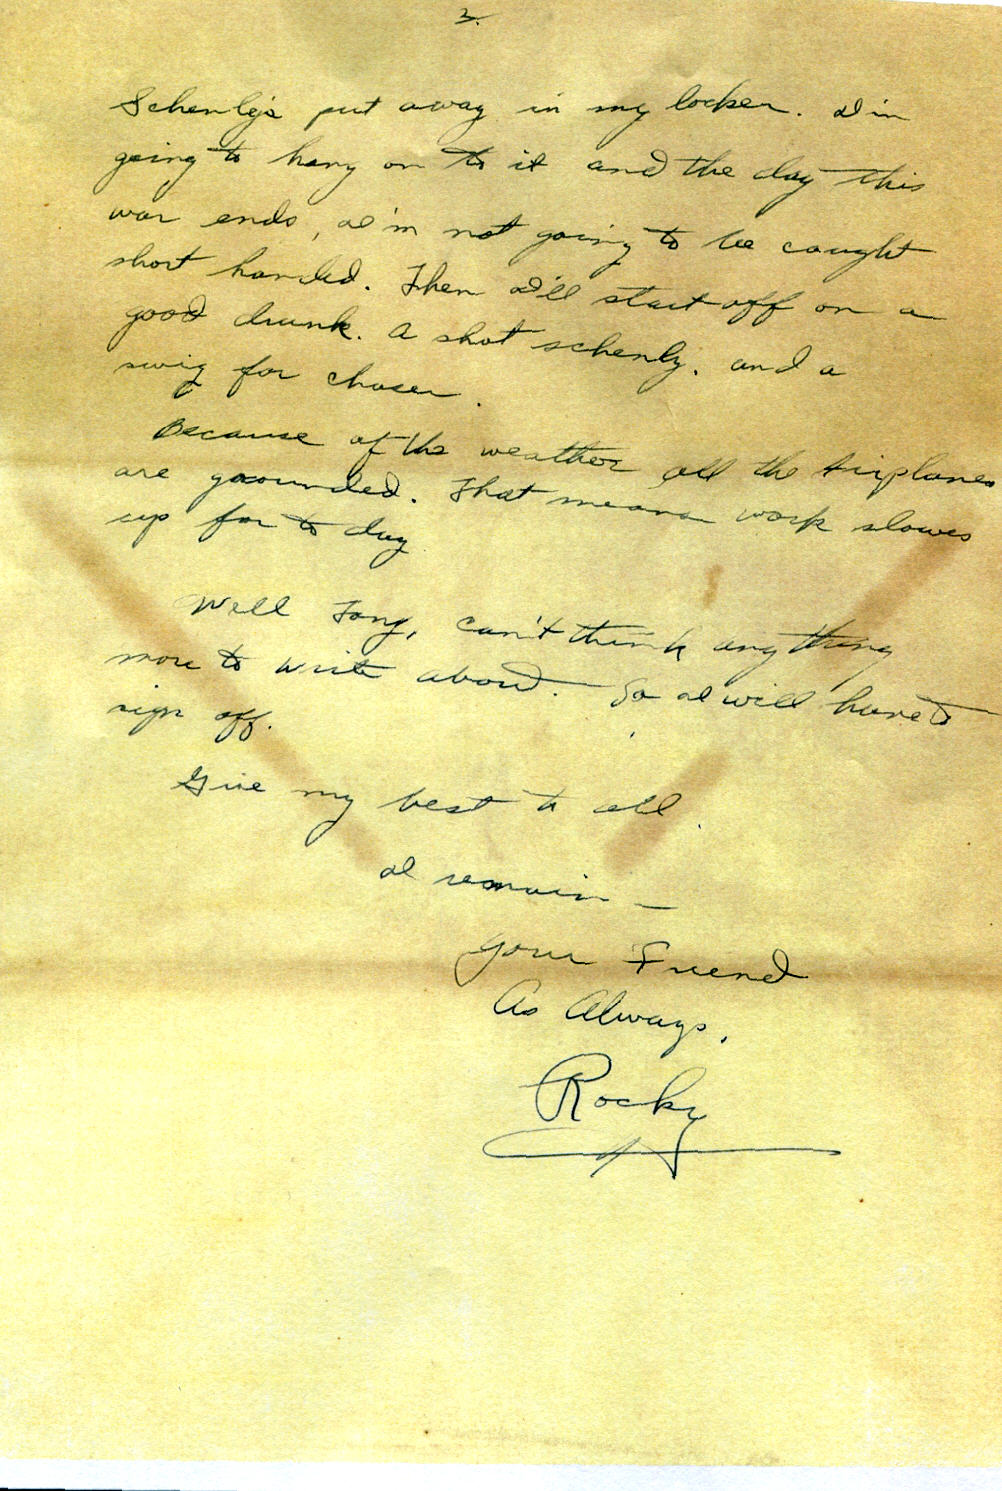 3.
Schenley's put away in my locker. I'm
going to hang on to it and the day this
war ends, I'm not going to be caught
short handed. Then I'll start off on a
good drunk. A shot schenly. and a
swig for chaser.
Because of the weather all the Airplanes
are grounded. That means work slows
up for to day
Well Tony, can't think any thing
more to write about. So I will have to
sign off.
Give my best to all.
I remain —
Your Friend
As Always,
Rocky